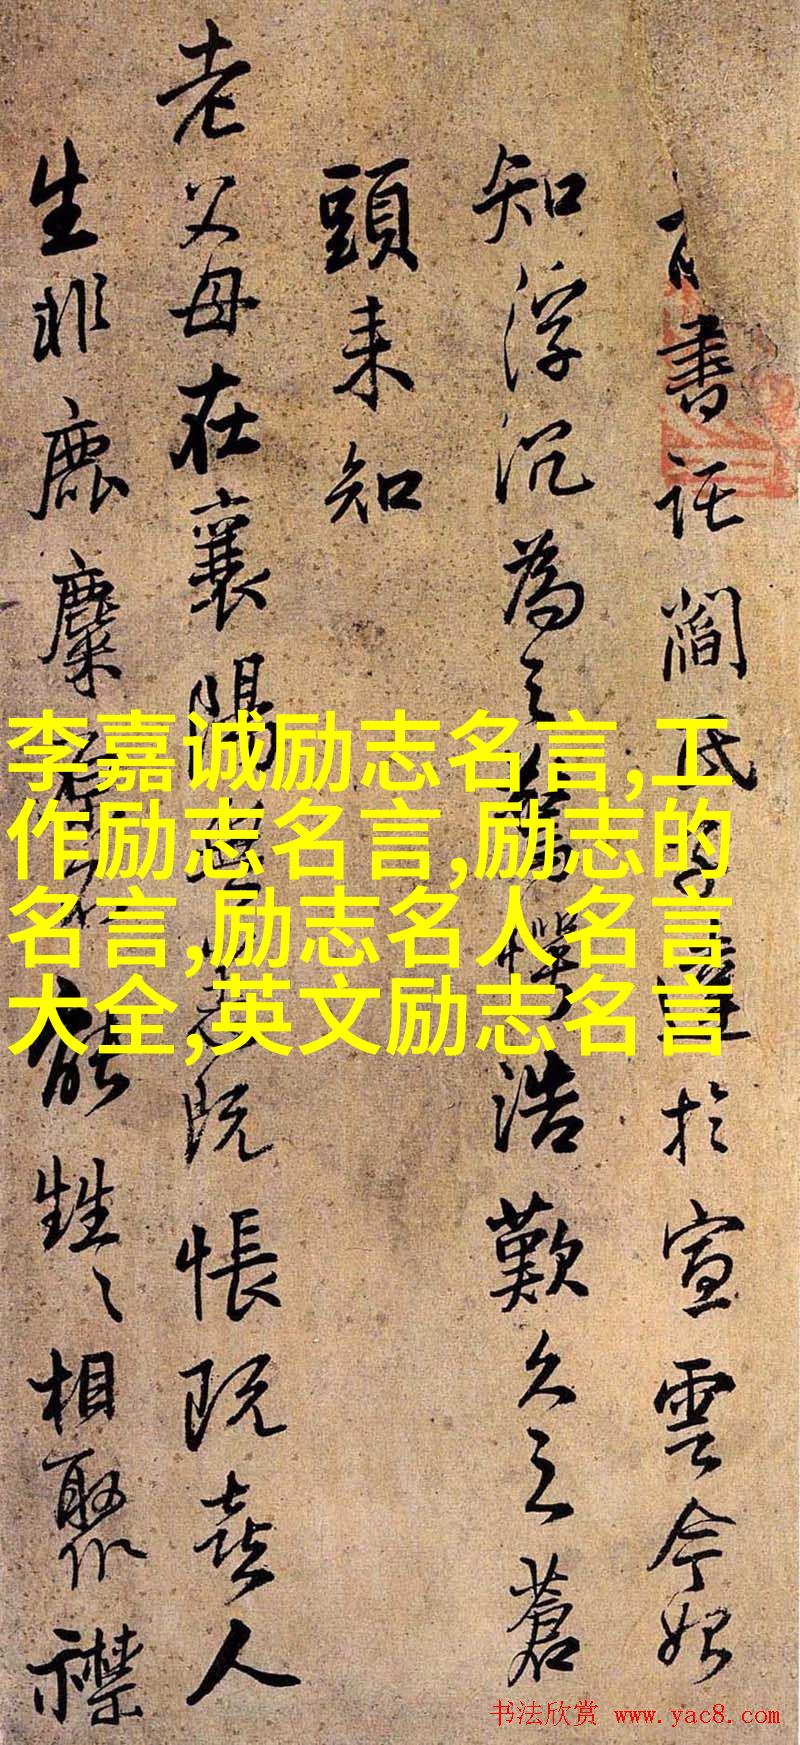 書託閻氏於宣雲今始
知浮沉為之浩歎久之蒼
頭来知
老父母在襄陽既悵既喜人
生非鹿麋能甡〻相聚襟
李嘉诚励志名言,工
作励志名言,励志的
名言,励志名人名言
大全,英文励志名言
书法欣赏 www.yac8.com